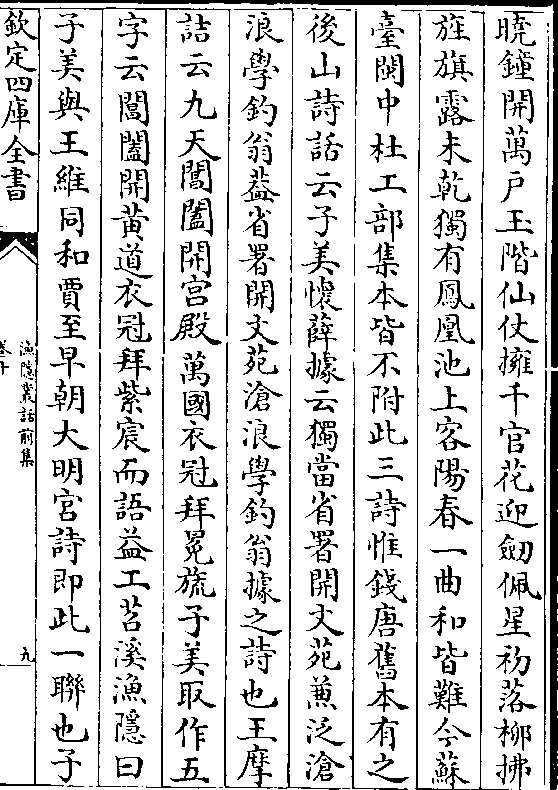 曉鐘開萬戸玉階仙仗擁千官花迎劒佩星初落柳拂
旌旗露未乾獨有鳳凰池上客陽春一曲和皆難今蘇
臺閩中杜工部集本皆不附此三詩惟錢唐舊本有之
後山詩話云子美懷薛據云獨當省署開文苑兼泛滄
浪學釣翁葢省署開文苑滄浪學釣翁據之詩也王摩
詰云九天閶闔開宫殿萬國衣冠拜冕旒子美取作五
字云閶闔開黄道衣冠拜紫宸而語益工苕溪漁隠曰
子美與王維同和賈至早朝大明宫詩即此一聯也子
欽定四庫全書
漁隠叢話前集
卷十
九